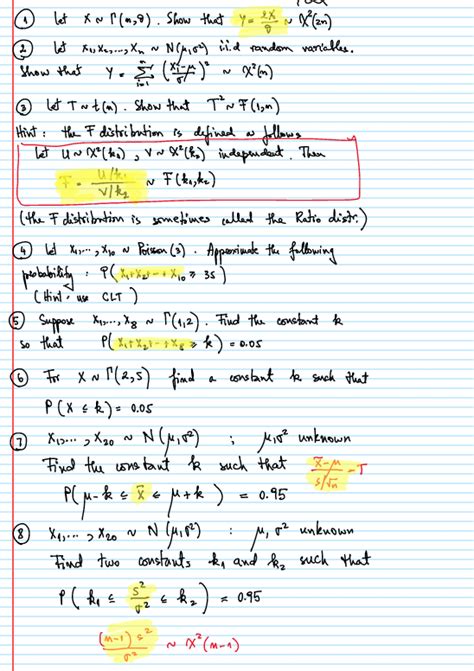 ① Let X ~ Γ(n,θ). Show that Y = 2X/θ ~ X²(2n)
② Let X₁, X₂, ..., Xₙ ~ N(μ,σ²) i.i.d random variables.
Show that Y = Σⁿᵢ₌₁ ((Xᵢ-μ)/σ)² ~ X²(n)
③ Let T ~ t(n). Show that T² ~ F(1,n)
Hint: the F distribution is defined as follows
Let U ~ X²(k₁), V ~ X²(k₂) independent. Then
F = (U/k₁)/(V/k₂) ~ F(k₁,k₂)
(the F distribution is sometimes called the Ratio distr.)
④ Let X₁, ..., X₁₀ ~ Poisson(3). Approximate the following
probability: P(X₁+X₂+...+X₁₀ ≥ 35)
(Hint: use CLT)
⑤ Suppose X₁, ..., X₈ ~ Γ(1,2). Find the constant k
so that P(X₁+X₂+...+X₈ ≥ k) = 0.05
⑥ For X ~ Γ(2,5) find a constant k such that
P(X ≤ k) = 0.05
⑦ X₁, ..., X₂₀ ~ N(μ,σ²) ; μ,σ² unknown
Find the constant k such that (X̄-μ)/(s/√n) ~ T
P(μ-k ≤ X̄ ≤ μ+k) = 0.95
⑧ X₁, ..., X₂₀ ~ N(μ,σ²) : μ, σ² unknown
Find two constants k₁ and k₂ such that
P(k₁ ≤ s²/σ² ≤ k₂) = 0.95
(n-1)s²/σ² ~ X²(n-1)